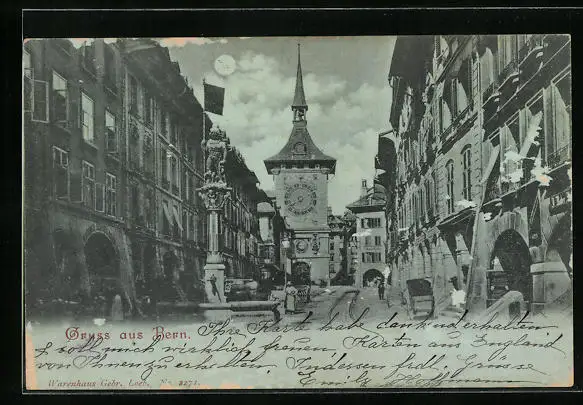 Gruss aus Bern.
Ihre Karte habe dankend erhalten,
Es soll mich wirklich freuen, Karten aus England
von Ihnen zu erhalten. Indessen frdl. Grüsse
Emily Hoffmann
Warenhaus Gebr. Loeb, No. 2271.